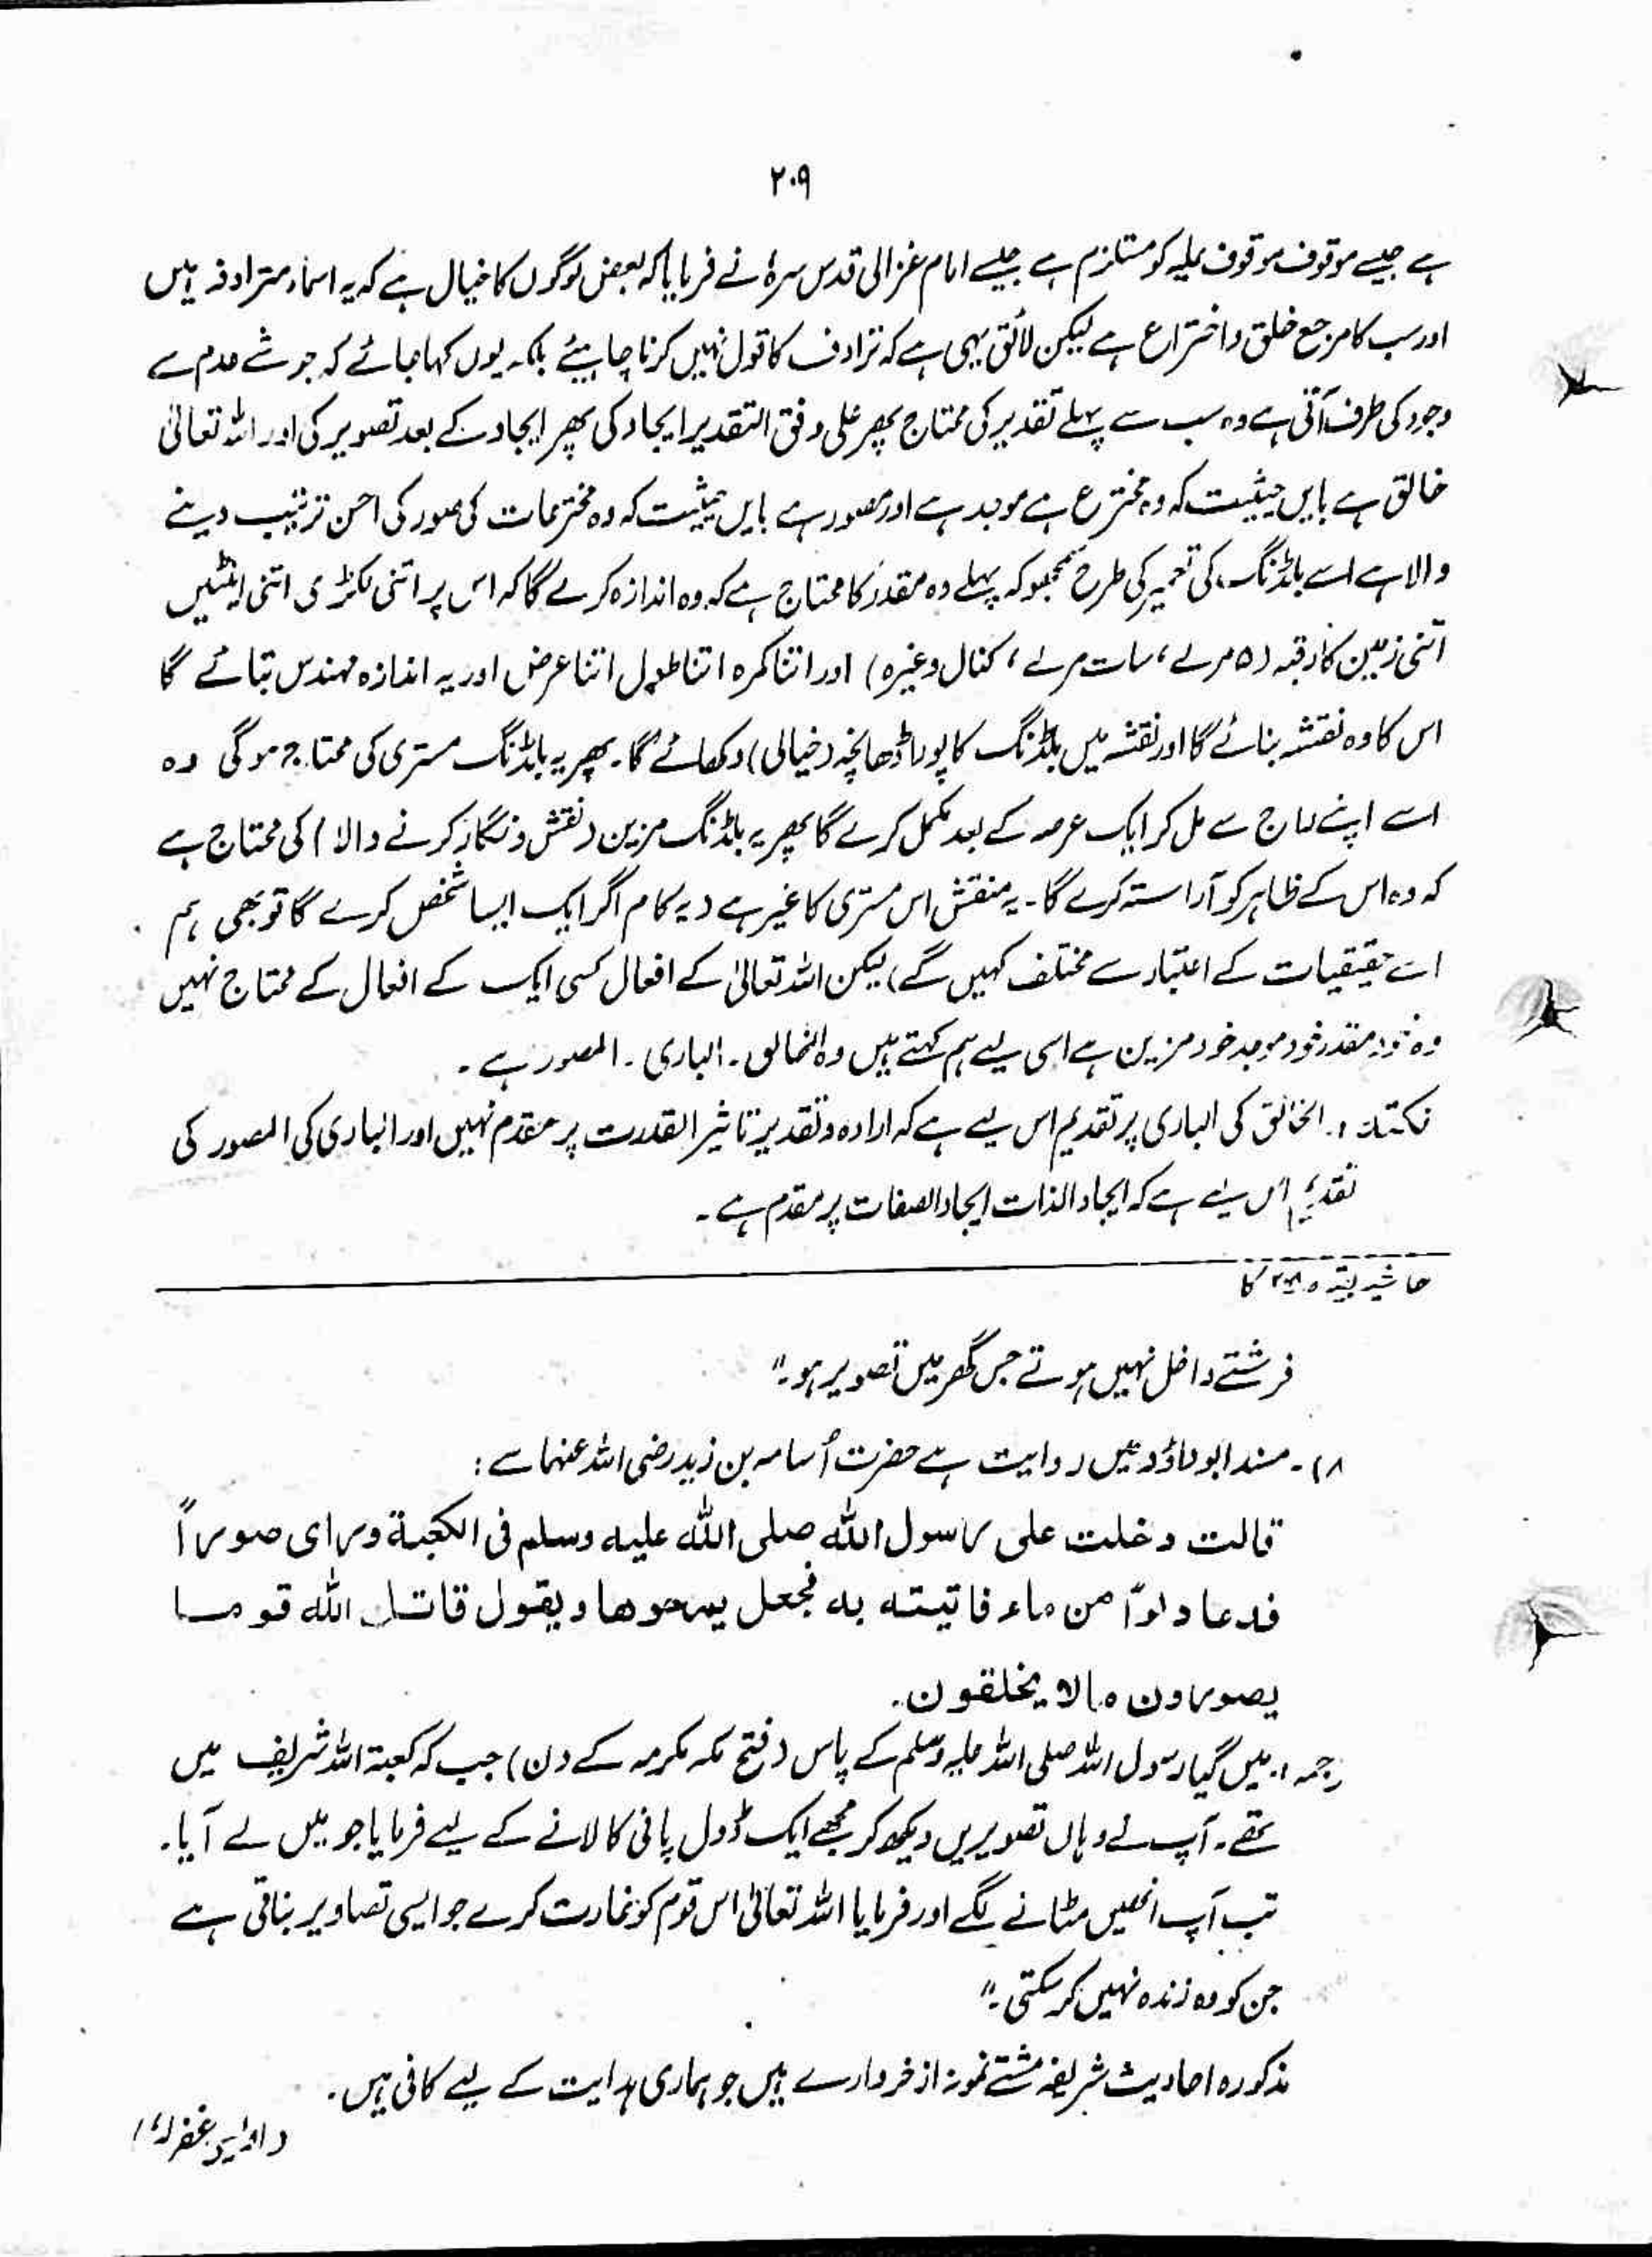 ۲۰۹
ہے جیسے موقوف موقوف علیہ کو مستلزم ہے جیسے امام غزالی قدس سرہٗ نے فرمایا کہ بعض لوگوں کا خیال ہے کہ یہ اسماء مترادفہ ہیں
اور سب کا مرجع خلق و اختراع ہے لیکن لائق یہی ہے کہ ترادف کا قول نہیں کرنا چاہیئے بلکہ یوں کہا جائے کہ جو شے عدم سے
وجود کی طرف آتی ہے وہ سب سے پہلے تقدیر کی محتاج پھر علی وفق التقدیر ایجاد کی پھر ایجاد کے بعد تصویر کی اور اللہ تعالیٰ
خالق ہے بایں حیثیت کہ وہ مخترع ہے موجد ہے اور مصور ہے بایں حیثیت کہ وہ مخترعات کی صور کی احسن ترتیب دینے
والا ہے اسے بلڈنگ کی تعمیر کی طرح سمجھو کہ پہلے وہ مقدر کا محتاج ہے کہ وہ اندازہ کرے گا کہ اس پر اتنی لکڑی اتنی اینٹیں
اتنی زمین کا رقبہ (۵ مرلے ، سات مرلے ، کنال وغیرہ) اور اتنا کمرہ اتنا طول اتنا عرض اور یہ اندازہ مہندس بتائے گا
اس کا وہ نقشہ بنائے گا اور نقشہ میں بلڈنگ کا پورا ڈھانچہ (خیالی) دکھائے گا۔ پھر یہ بلڈنگ مستری کی محتاج ہوگی وہ
اسے اپنے راج سے مل کر ایک عرصہ کے بعد مکمل کرے گا پھر یہ بلڈنگ مزین (نقش و نگار کرنے والا) کی محتاج ہے
کہ وہ اس کے ظاہر کو آراستہ کرے گا۔ یہ منقش اس مستری کا غیر ہے (یہ کام اگر ایک ایسا شخص کرے گا تو بھی ہم
اسے حقیقیات کے اعتبار سے مختلف کہیں گے) لیکن اللہ تعالیٰ کے افعال کسی ایک کے افعال کے محتاج نہیں
وہ خود مقدر خود موجد خود مزین ہے اسی لیے ہم کہتے ہیں وہ الخالق۔ الباری۔ المصور ہے۔
نکتہ :۔ الخالق کی الباری پر تقدیم اس لیے ہے کہ ارادہ و تقدیر تاثیر القدرت پر مقدم نہیں اور الباری کی المصور کی
تقدیم اس لیے ہے کہ ایجاد الذات ایجاد الصفات پر مقدم ہے۔
حاشیہ بقیہ ص ۲۰۸ کا
فرشتے داخل نہیں ہوتے جس گھر میں تصویر ہو۔"
۱۸۔ مسند ابو داؤد میں روایت ہے حضرت اُسامہ بن زید رضی اللہ عنہما سے :
قالت دخلت علی رسول اللّٰہ صلی اللّٰہ علیہ وسلم فی الکعبۃ ورای صوراً
فدعا دلوًا من ماء فاتیتہ بہ فجعل یمحوھا و یقول قاتل اللّٰہ قوما
یصورون مالا یخلقون۔
رجمہ :۔ میں گیا رسول اللہ صلی اللہ علیہ وسلم کے پاس (فتح مکہ مکرمہ کے دن) جب کہ کعبۃ اللہ شریف میں
تھے۔ آپ نے وہاں تصویریں دیکھ کر مجھے ایک ڈول پانی کا لانے کے لیے فرمایا جو میں لے آیا۔
تب آپ انھیں مٹانے لگے اور فرمایا اللہ تعالیٰ اس قوم کو غارت کرے جو ایسی تصاویر بناتی ہے
جن کو وہ زندہ نہیں کر سکتی۔"
مذکورہ احادیث شریفہ مشتے نمونہ از خروارے ہیں جو ہماری ہدایت کے لیے کافی ہیں۔
(اویسی غفرلہٗ)